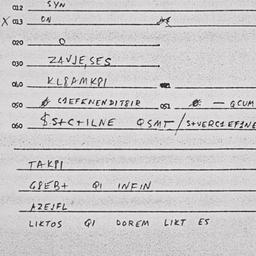 012 SYN
X 013 ON
020 O
030 ZAVJE,SES
040 KL8AMKPI
050 C1EFENENDIT8IR 051 — QCUM
060 $.S+C+ILNE QSMT/S+VERC1EF1NE
TAKPI
G8EB+ QI INFIN
AZEJFL
LIKTOS QI DOREM LIKT ES